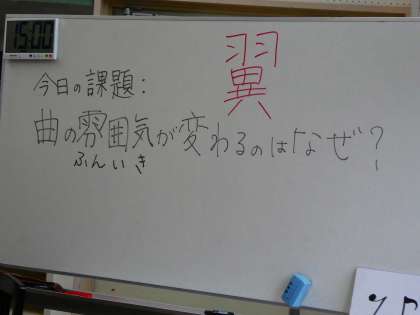 15:00
翼
今日の課題:
曲の雰囲気が変わるのはなぜ?
ふんいき